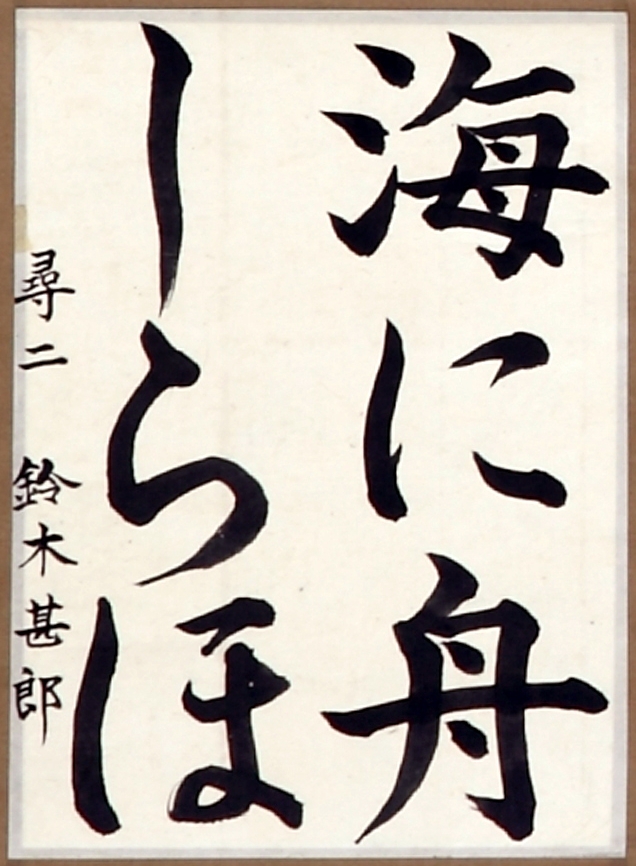 海に舟
しらほ
尋二 鈴木甚郎